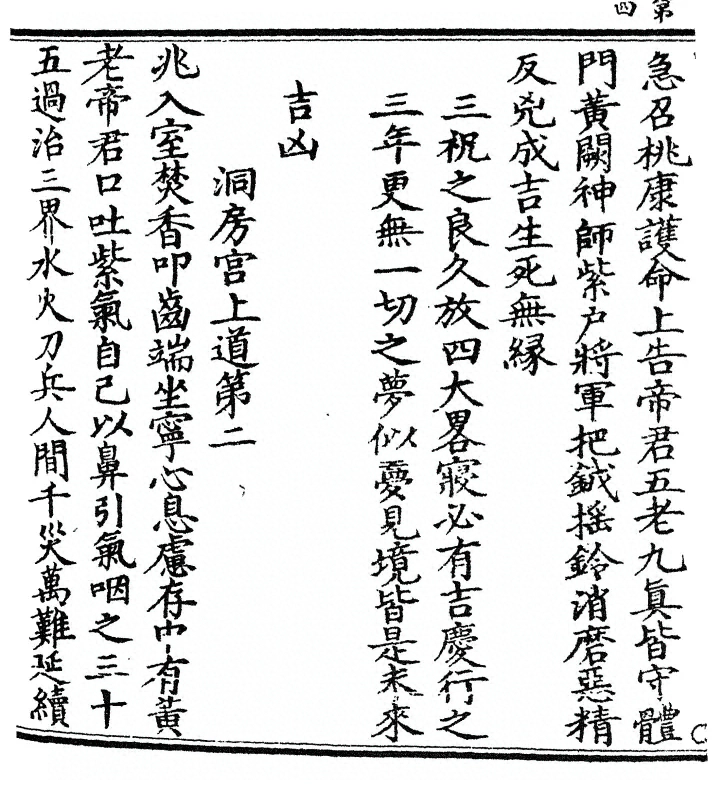 第
四
急召桃康護命上告帝君五老九眞皆守體
門黃闕神師紫户將軍把鉞揺鈴消磨惡精
反兇成吉生死無縁
三祝之良久放四大畧寢必有吉慶行之
三年更無一切之夢似憂見境皆是未來
吉凶
洞房宫上道第二
兆入室焚香叩齒端坐寧心息慮存中有黃
老帝君口吐紫氣自己以鼻引氣咽之三十
五過治三界水火刀兵人間千災萬難延續